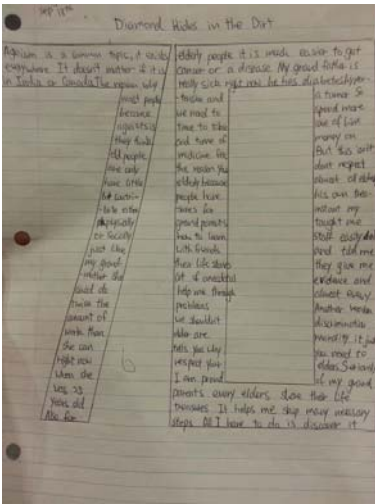 Sep 13th
Diamond Hides in the Dirt
Ageism is a common topic, it exists
everywhere. It doesn't matter if it is
in India or Canada. The reason why
most people
because
ageists is
they think
old people
are only
have little
bit contri-
-bute either
physically
or locally
just like
my grand
-mother she
could do
twice the
amount of
work than
she can
right now
when she
was 25
years old
Also for
elderly people it is much easier to get
cancer or a disease. My grand father is
really sick right now he has diabetes, hyper-
-tension and
we need to
time to take
and some of
medicine for
the reason you
elderly because
people have
-tures for
grand parents
how to learn
with friends
their life stories
lot of
help me through
problems
we shouldn't
older are
tells you why
respect your
I am proud
a tumor So
spend more
care of him
money on
But this isn't
don't respect
almost all elder
his own trea-
instant my
taught me
stuff easily
and told me
they give me
evidence and
almost every
Another
discrimination
morality it just
you need to
elders Seriously
of my grand
parents every elders store their life
treasures It helps me skip many
steps All I have to do is discover it